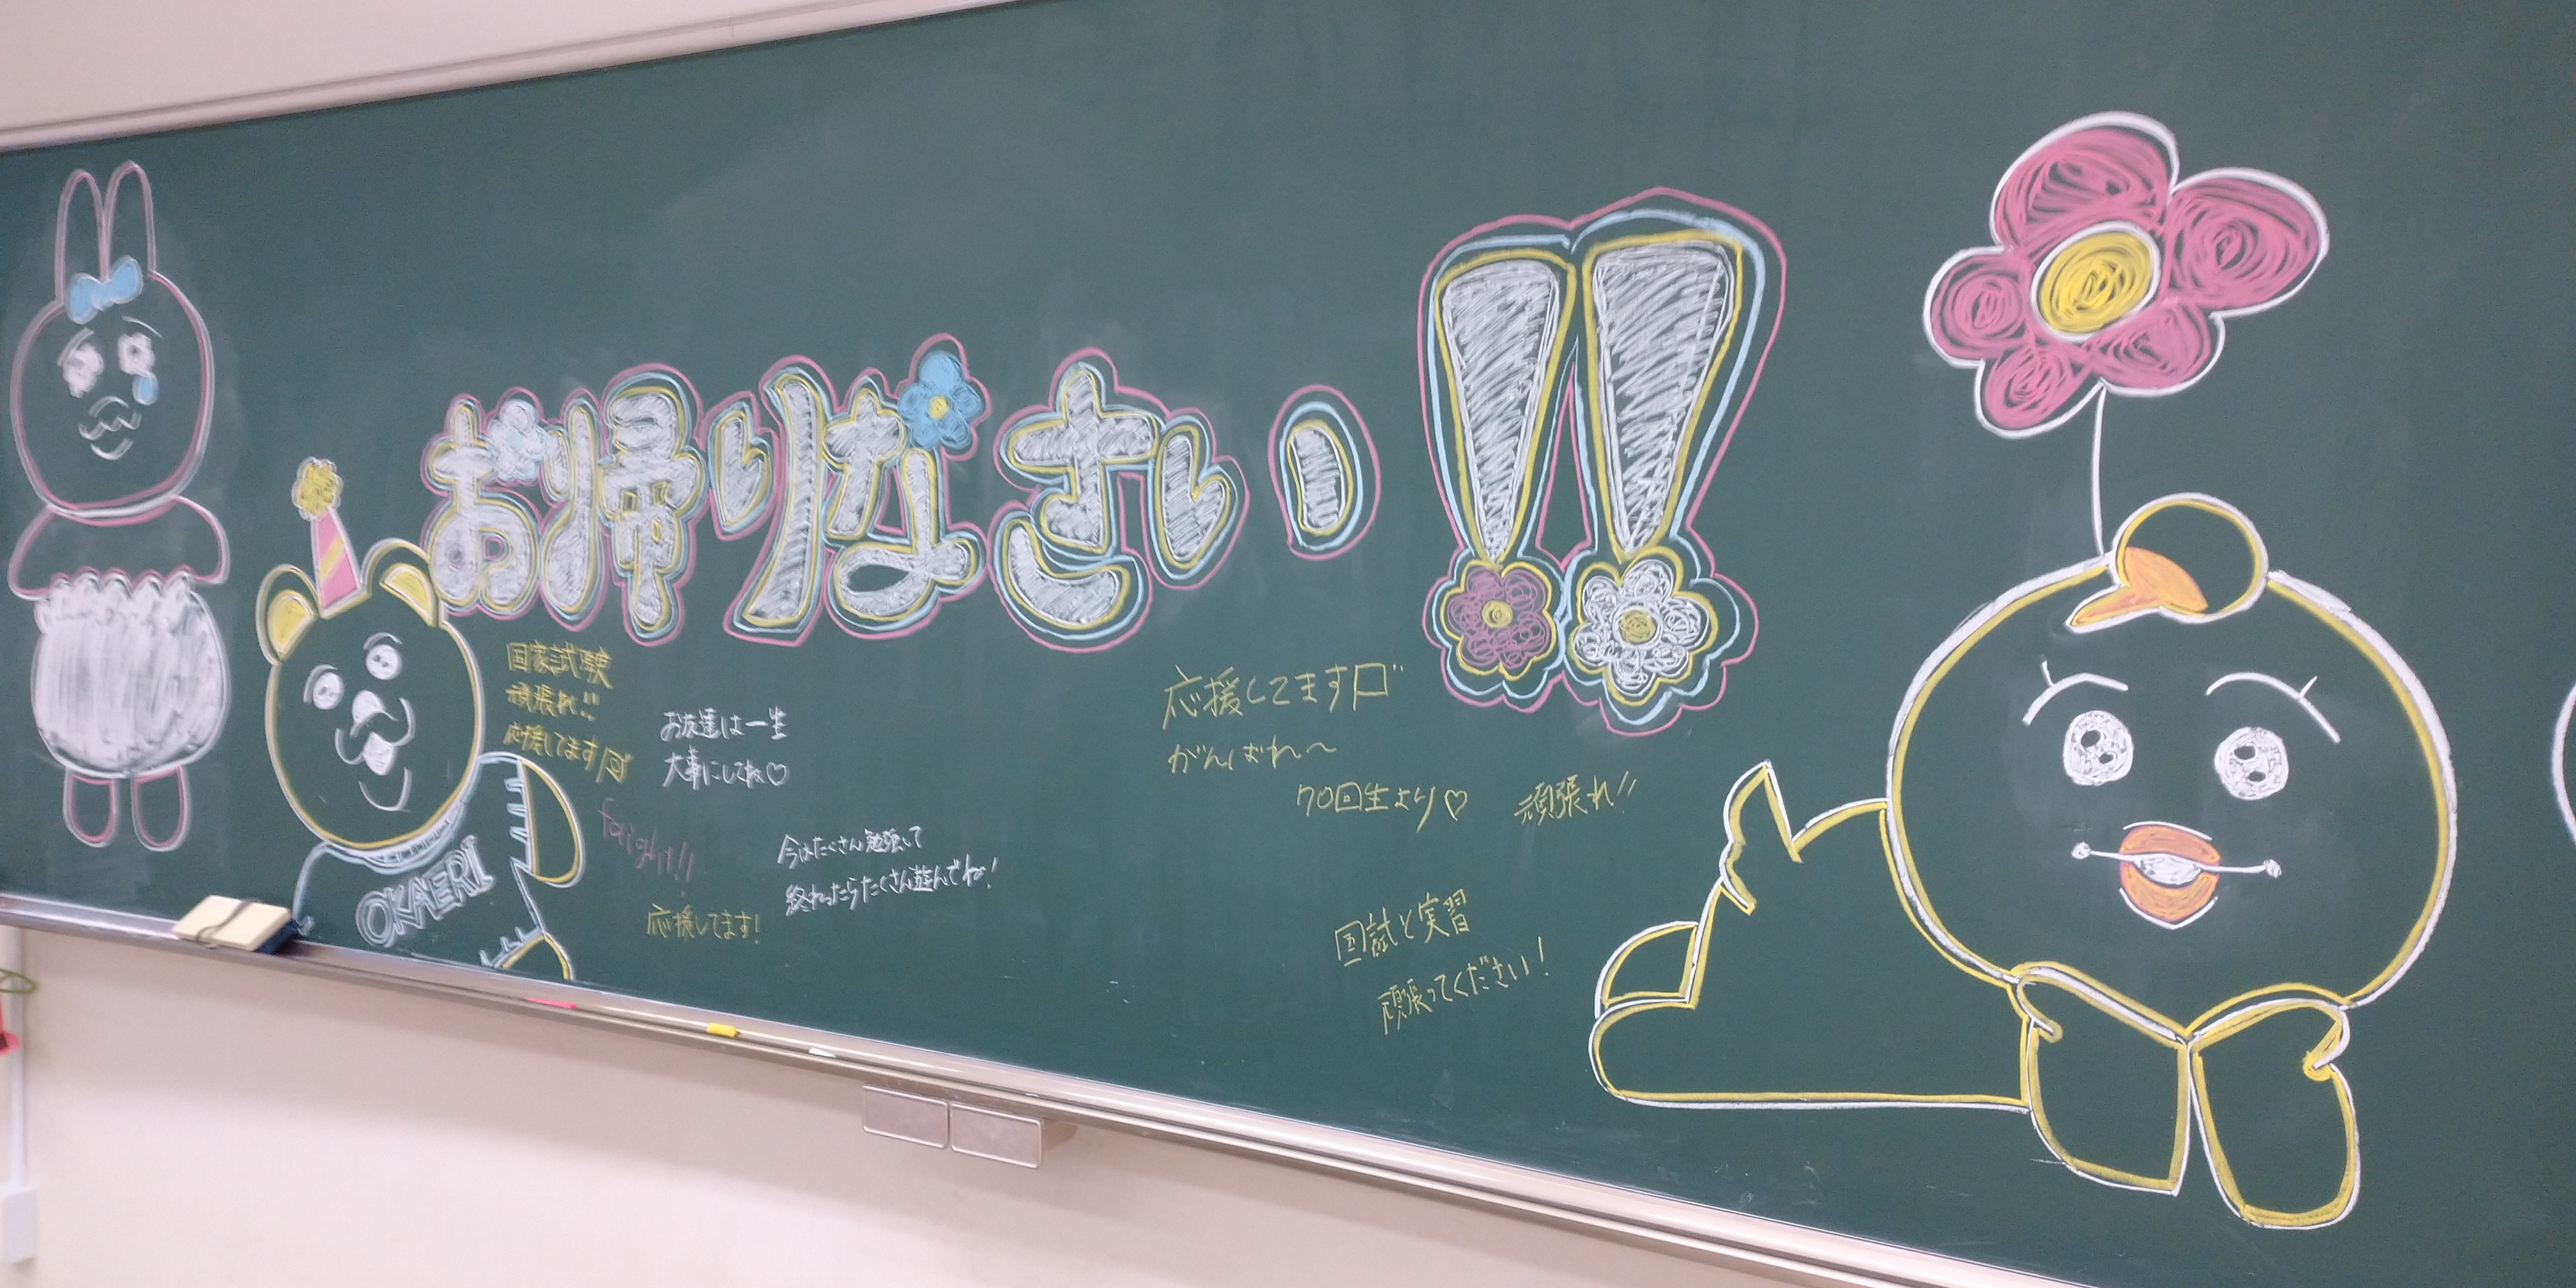 お帰りなさい!!
国家試験
頑張れ!!
応援してます
お友達は一生
大事にしてね♡
foright!!
今はたくさん勉強して
終わったらたくさん遊んでね!
応援してます!
OKAERI
応援してます
がんばれ〜
70回生より♡
頑張れ!!
国試と実習
頑張ってください!